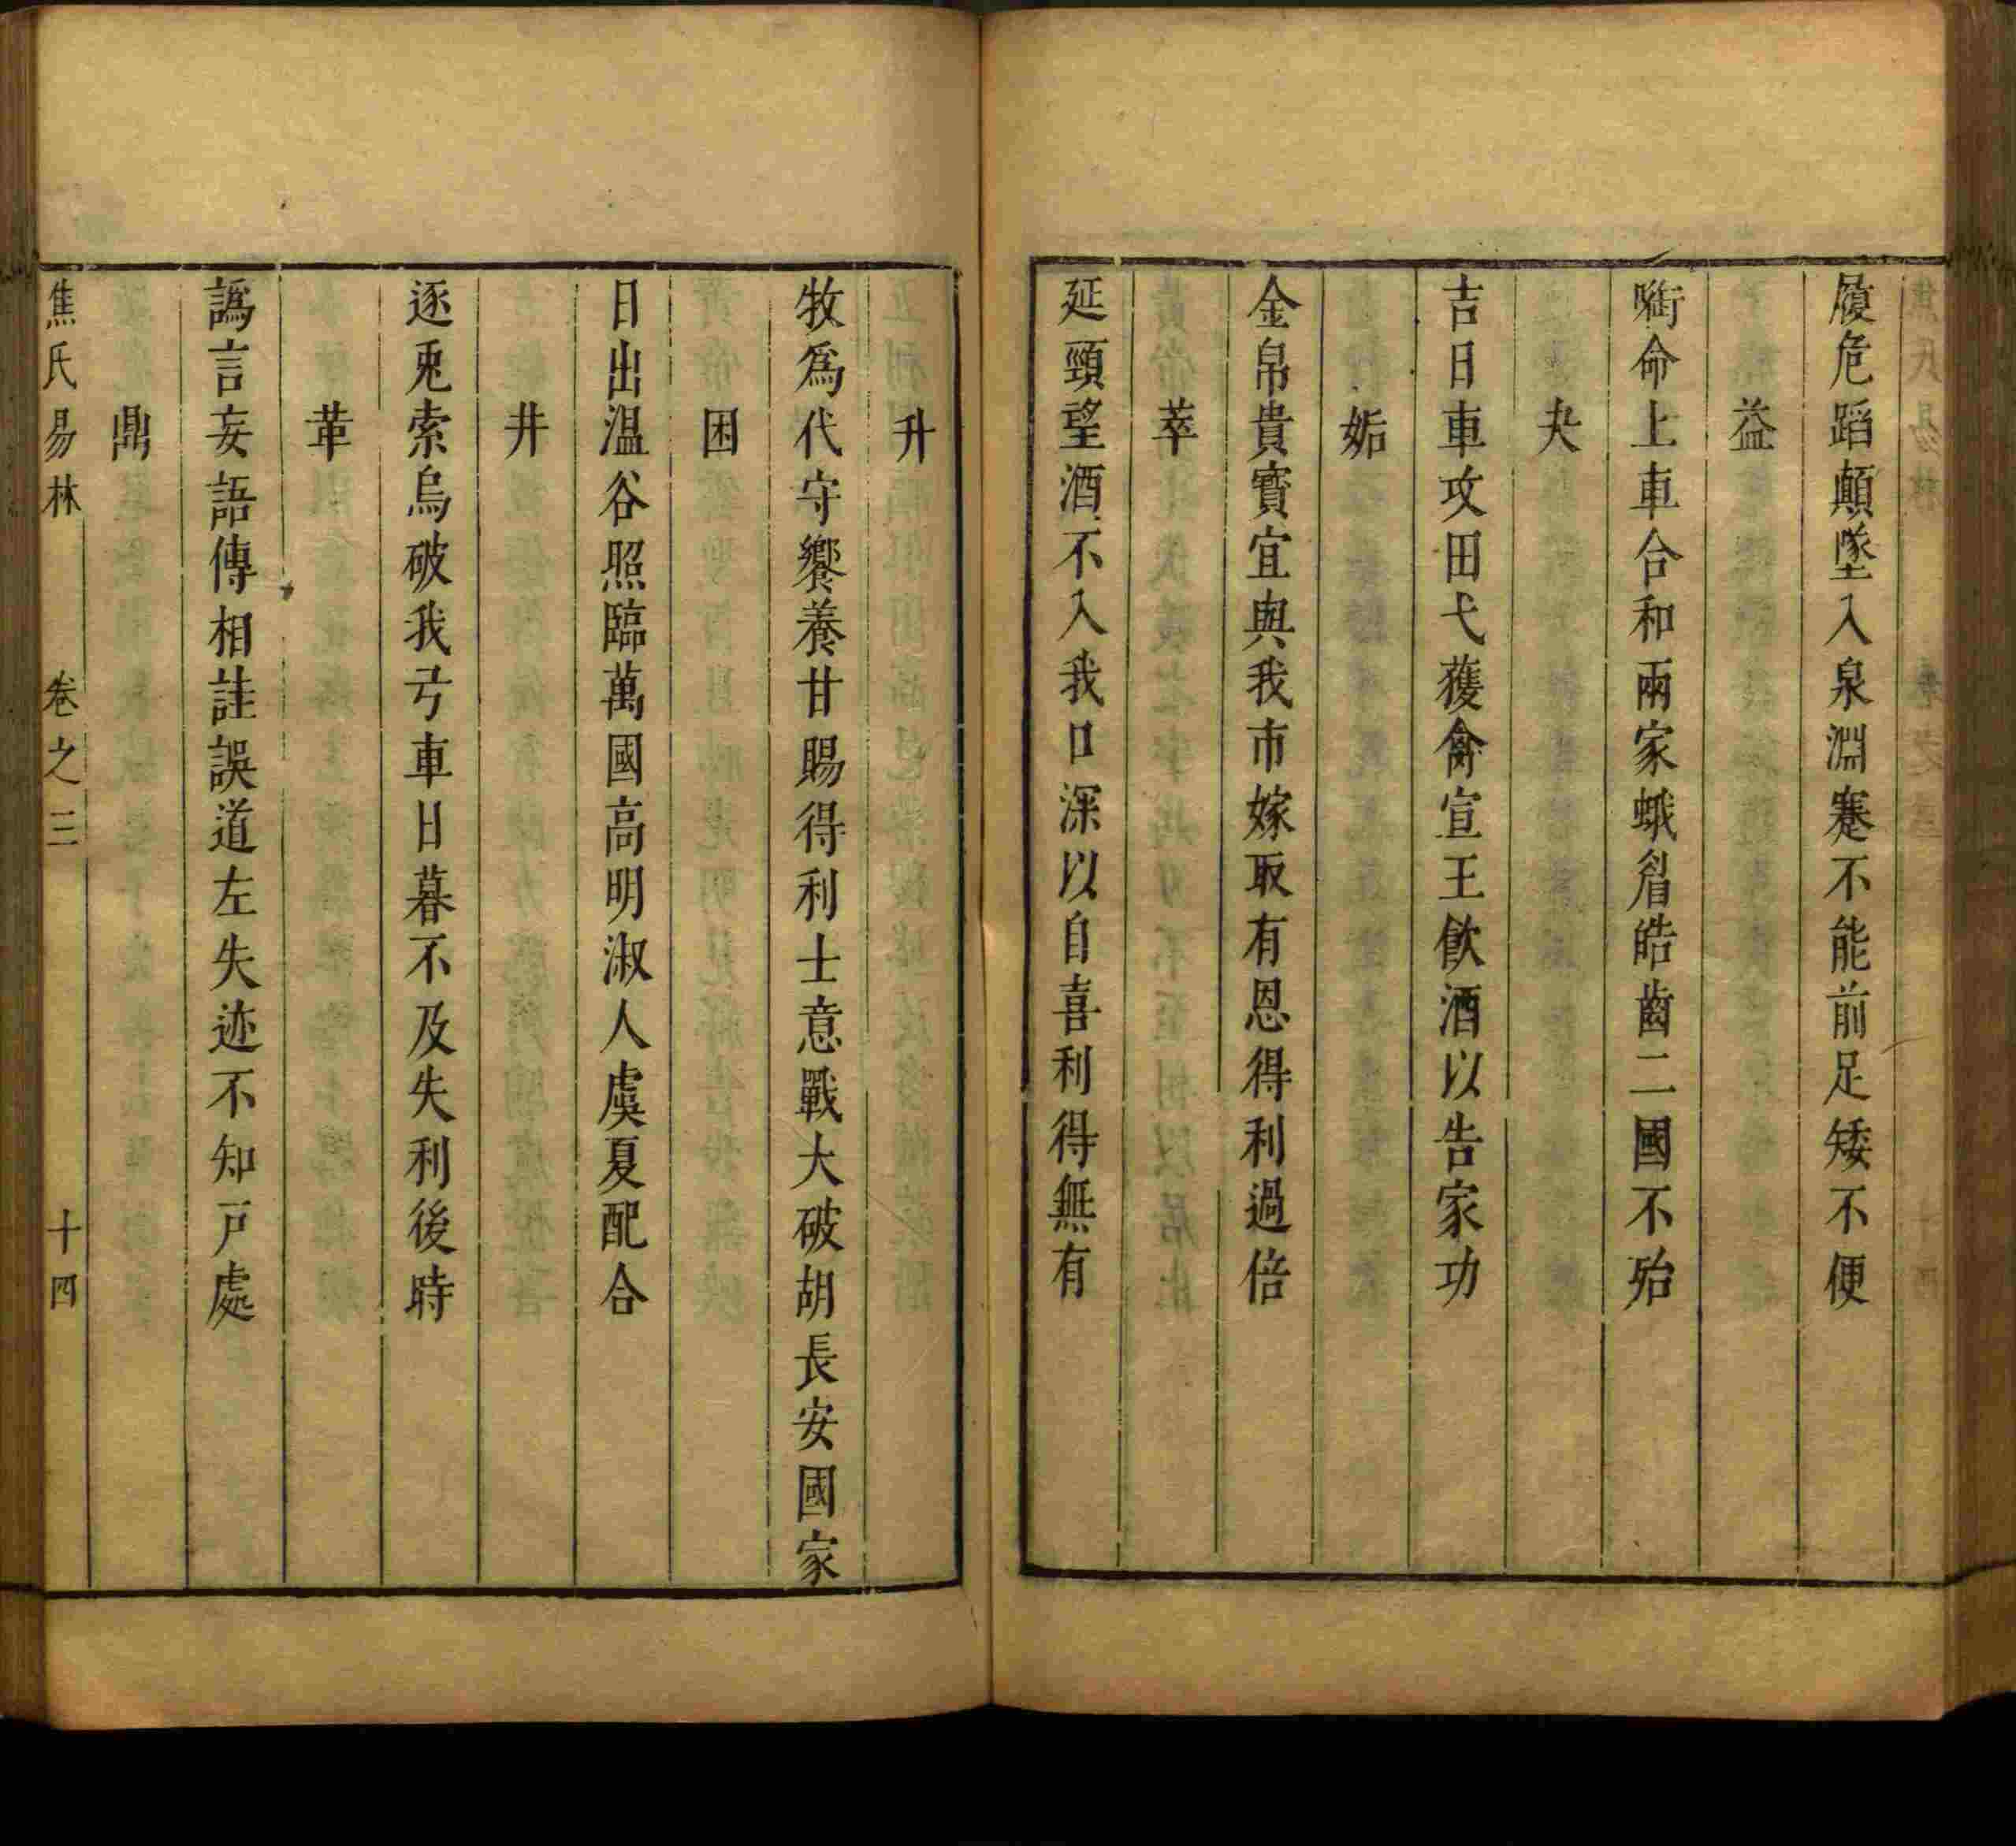 履危蹈顛墜入泉淵蹇不能前足矮不便
益
啣命上車合和兩家蛾眉皓齒二國不殆
夬
吉日車攻田弋獲禽宣王飲酒以告家功
姤
金帛貴寶宜與我市嫁取有恩得利過倍
萃
延頸望酒不入我口深以自喜利得無有
升
牧爲代守饗養甘賜得利士意戰大破胡長安國家
困
日出温谷照臨萬國高明淑人虞夏配合
井
逐兎索烏破我弓車日暮不及失利後時
革
譌言妄語傳相詿誤道左失迹不知戸處
鼎
焦氏易林 卷之三 十四